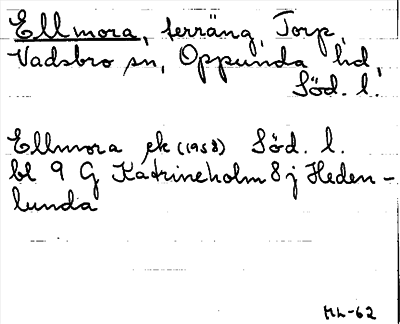 Ellmora, terräng, Torp,
Vadsbro sn, Oppunda hd,
Söd. l.
Ellmora ek (1958) Söd. l.
bl 9 G Katrineholm 8 j Heden-
lunda
ML-62